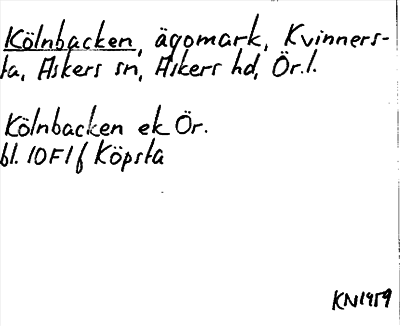 Kölnbacken, ägomark, Kvinners-
ta, Askers sn, Askers hd, Ör.l.
Kölnbacken ek Ör.
bl. 10F1f Köpsta
KN1959